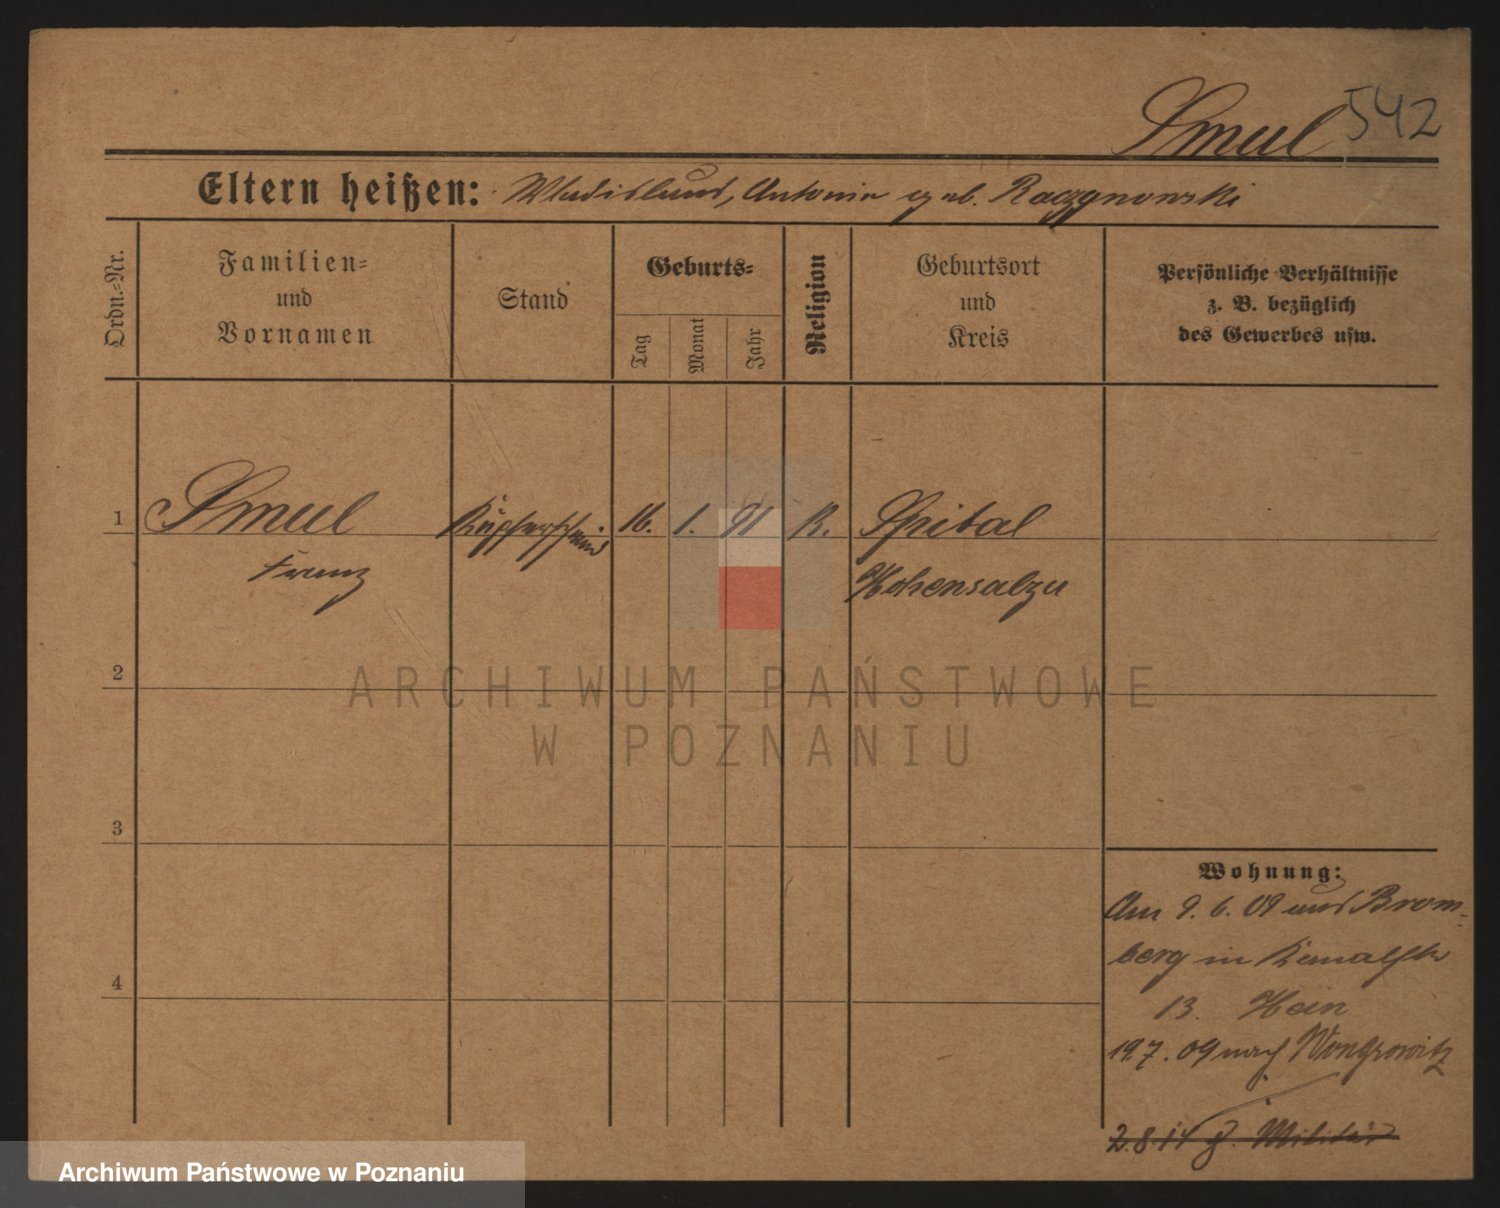 Smul 542
Eltern heißen: Wladislaus, Antonie geb. Raczynowski
Ordn.-Nr.
Familien-
und
Vornamen
Stand
Geburts-
Tag
Monat
Jahr
Religion
Geburtsort
und
Kreis
Persönliche Verhältnisse
z. B. bezüglich
des Gewerbes usw.
1 Smul Kupferschmied 16. 1. 91 K. Spital
Franz Hohensalza
2
ARCHIWUM PAŃSTWOWE
W POZNANIU
3
Wohnung:
Am 9. 6. 09 aus Brom-
berg in
4
13. Hein
19.7.09 nach Wongrowitz
2.8.14 z. Militär
Archiwum Państwowe w Poznaniu